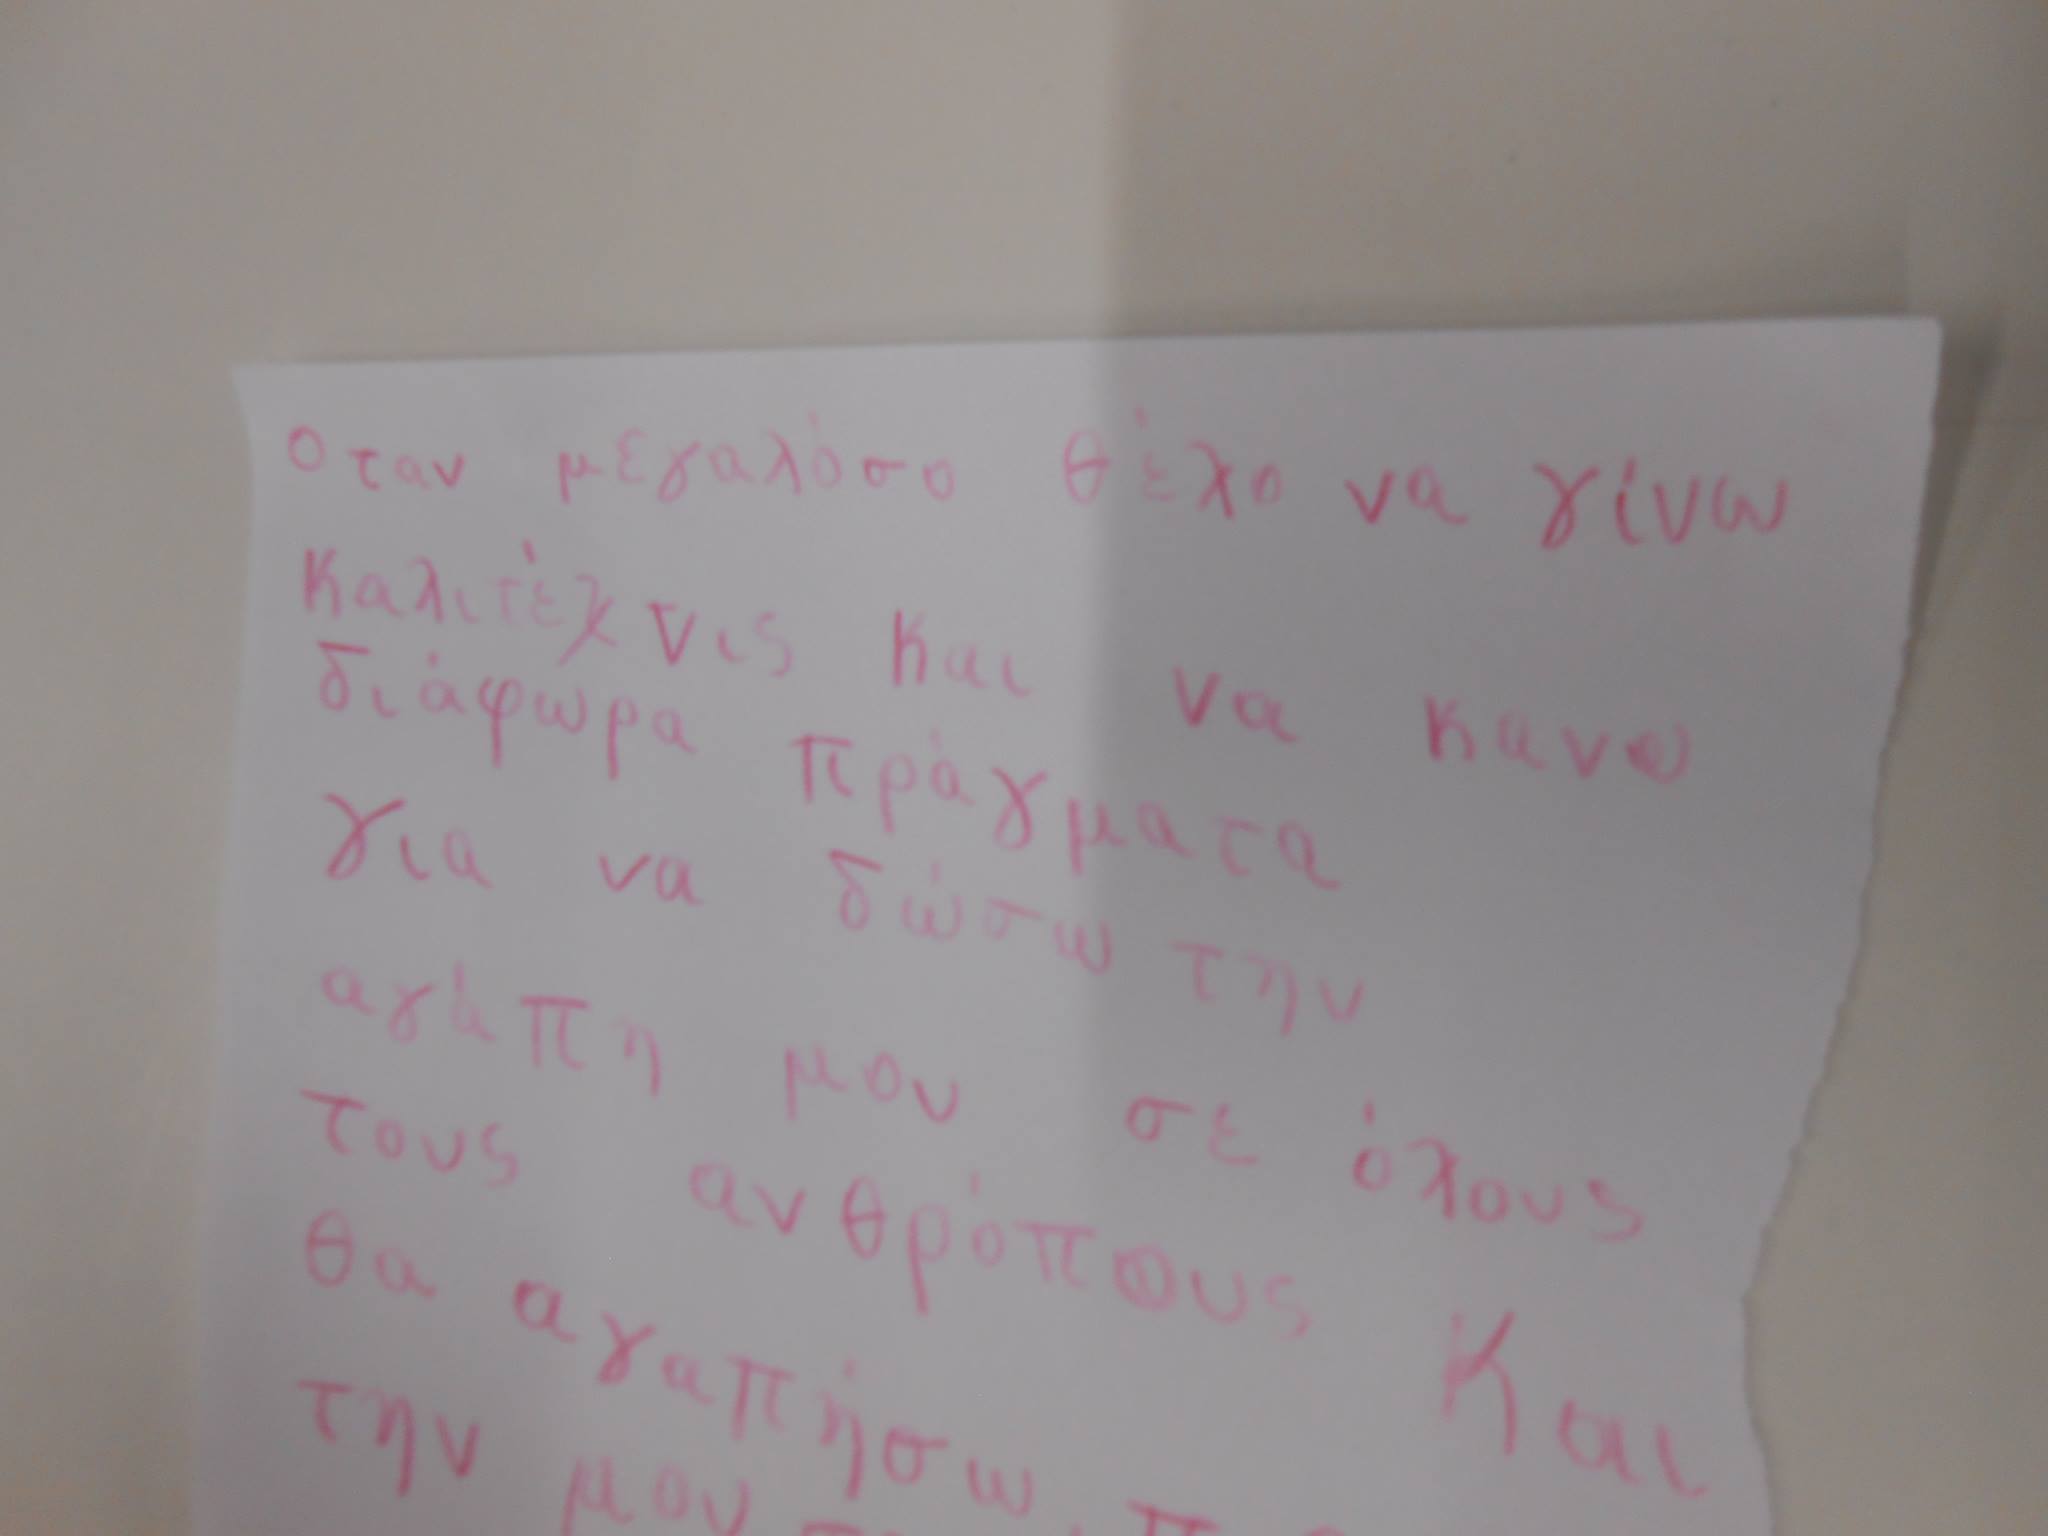 Οταν μεγαλόσο θέλο να γίνω
Καλιτέχνις Και να κανω
διάφωρα πράγματα
για να δώσω την
αγάπη μου σε όλους
τους ανθρόπους Και
θα αγαπήσω
την μου